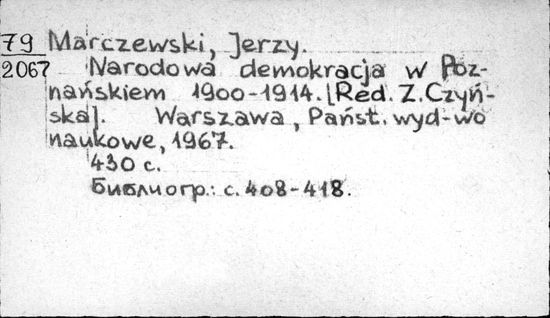 79 Marczewski, Jerzy.
2067 Narodowa demokracja w Poz-
nańskiem 1900-1914. [Red. Z. Czyń-
ska]. Warszawa, Państ. wyd-wo
naukowe, 1967.
430 с.
Библиогр.: с. 408-418.